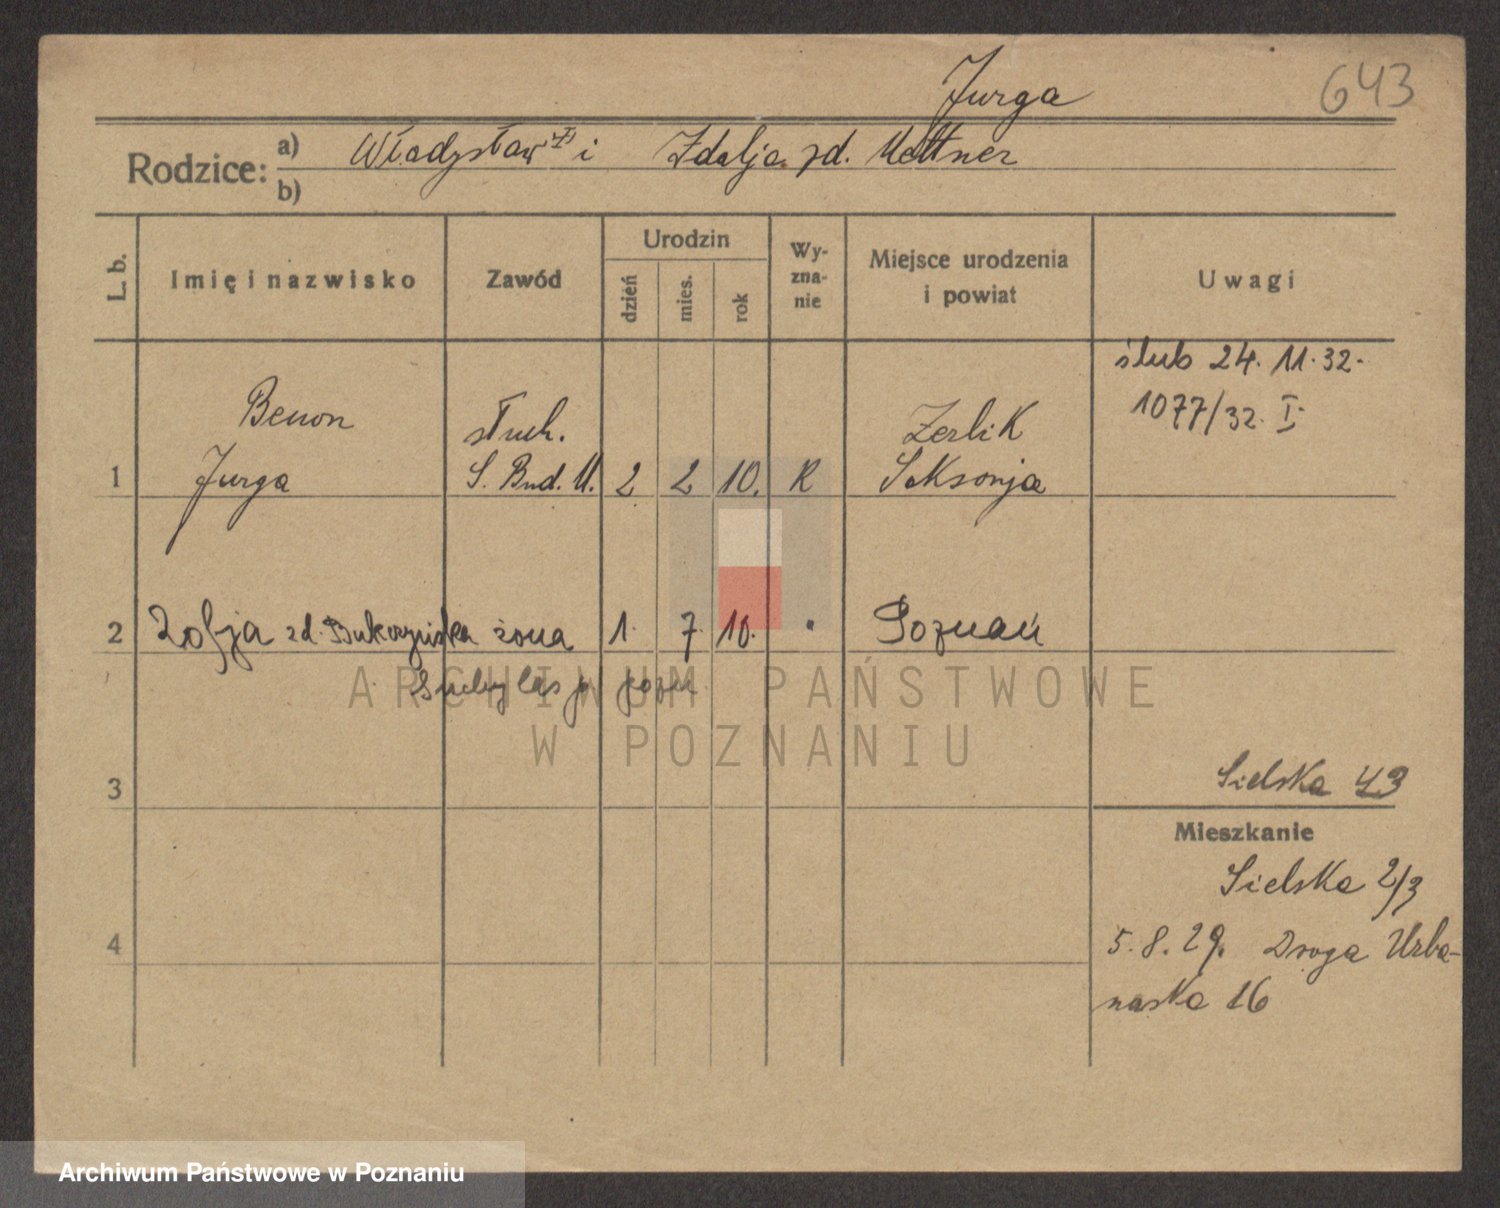 Jurga
643
Rodzice: a) Władysław i Idalja zd. Mettner
b)
L. b.
Imię i nazwisko
Zawód
Urodzin
dzień
mies.
rok
Wy-
zna-
nie
Miejsce urodzenia
i powiat
Uwagi
ślub 24. 11. 32.
1077/32. I
Benon
słuch.
Zerlik
1 Jurga S. Bud. M. 2 2 10. R Saksonja
2 Zofja zd. Bukrzyńska żona 1. 7. 10. " Poznań
Suchylas p
ARCHIWUM PAŃSTWOWE
W POZNANIU
3
Sielska 43
Mieszkanie
Sielska 2/3
4
5. 8. 29. Droga Urba-
naska 16
Archiwum Państwowe w Poznaniu